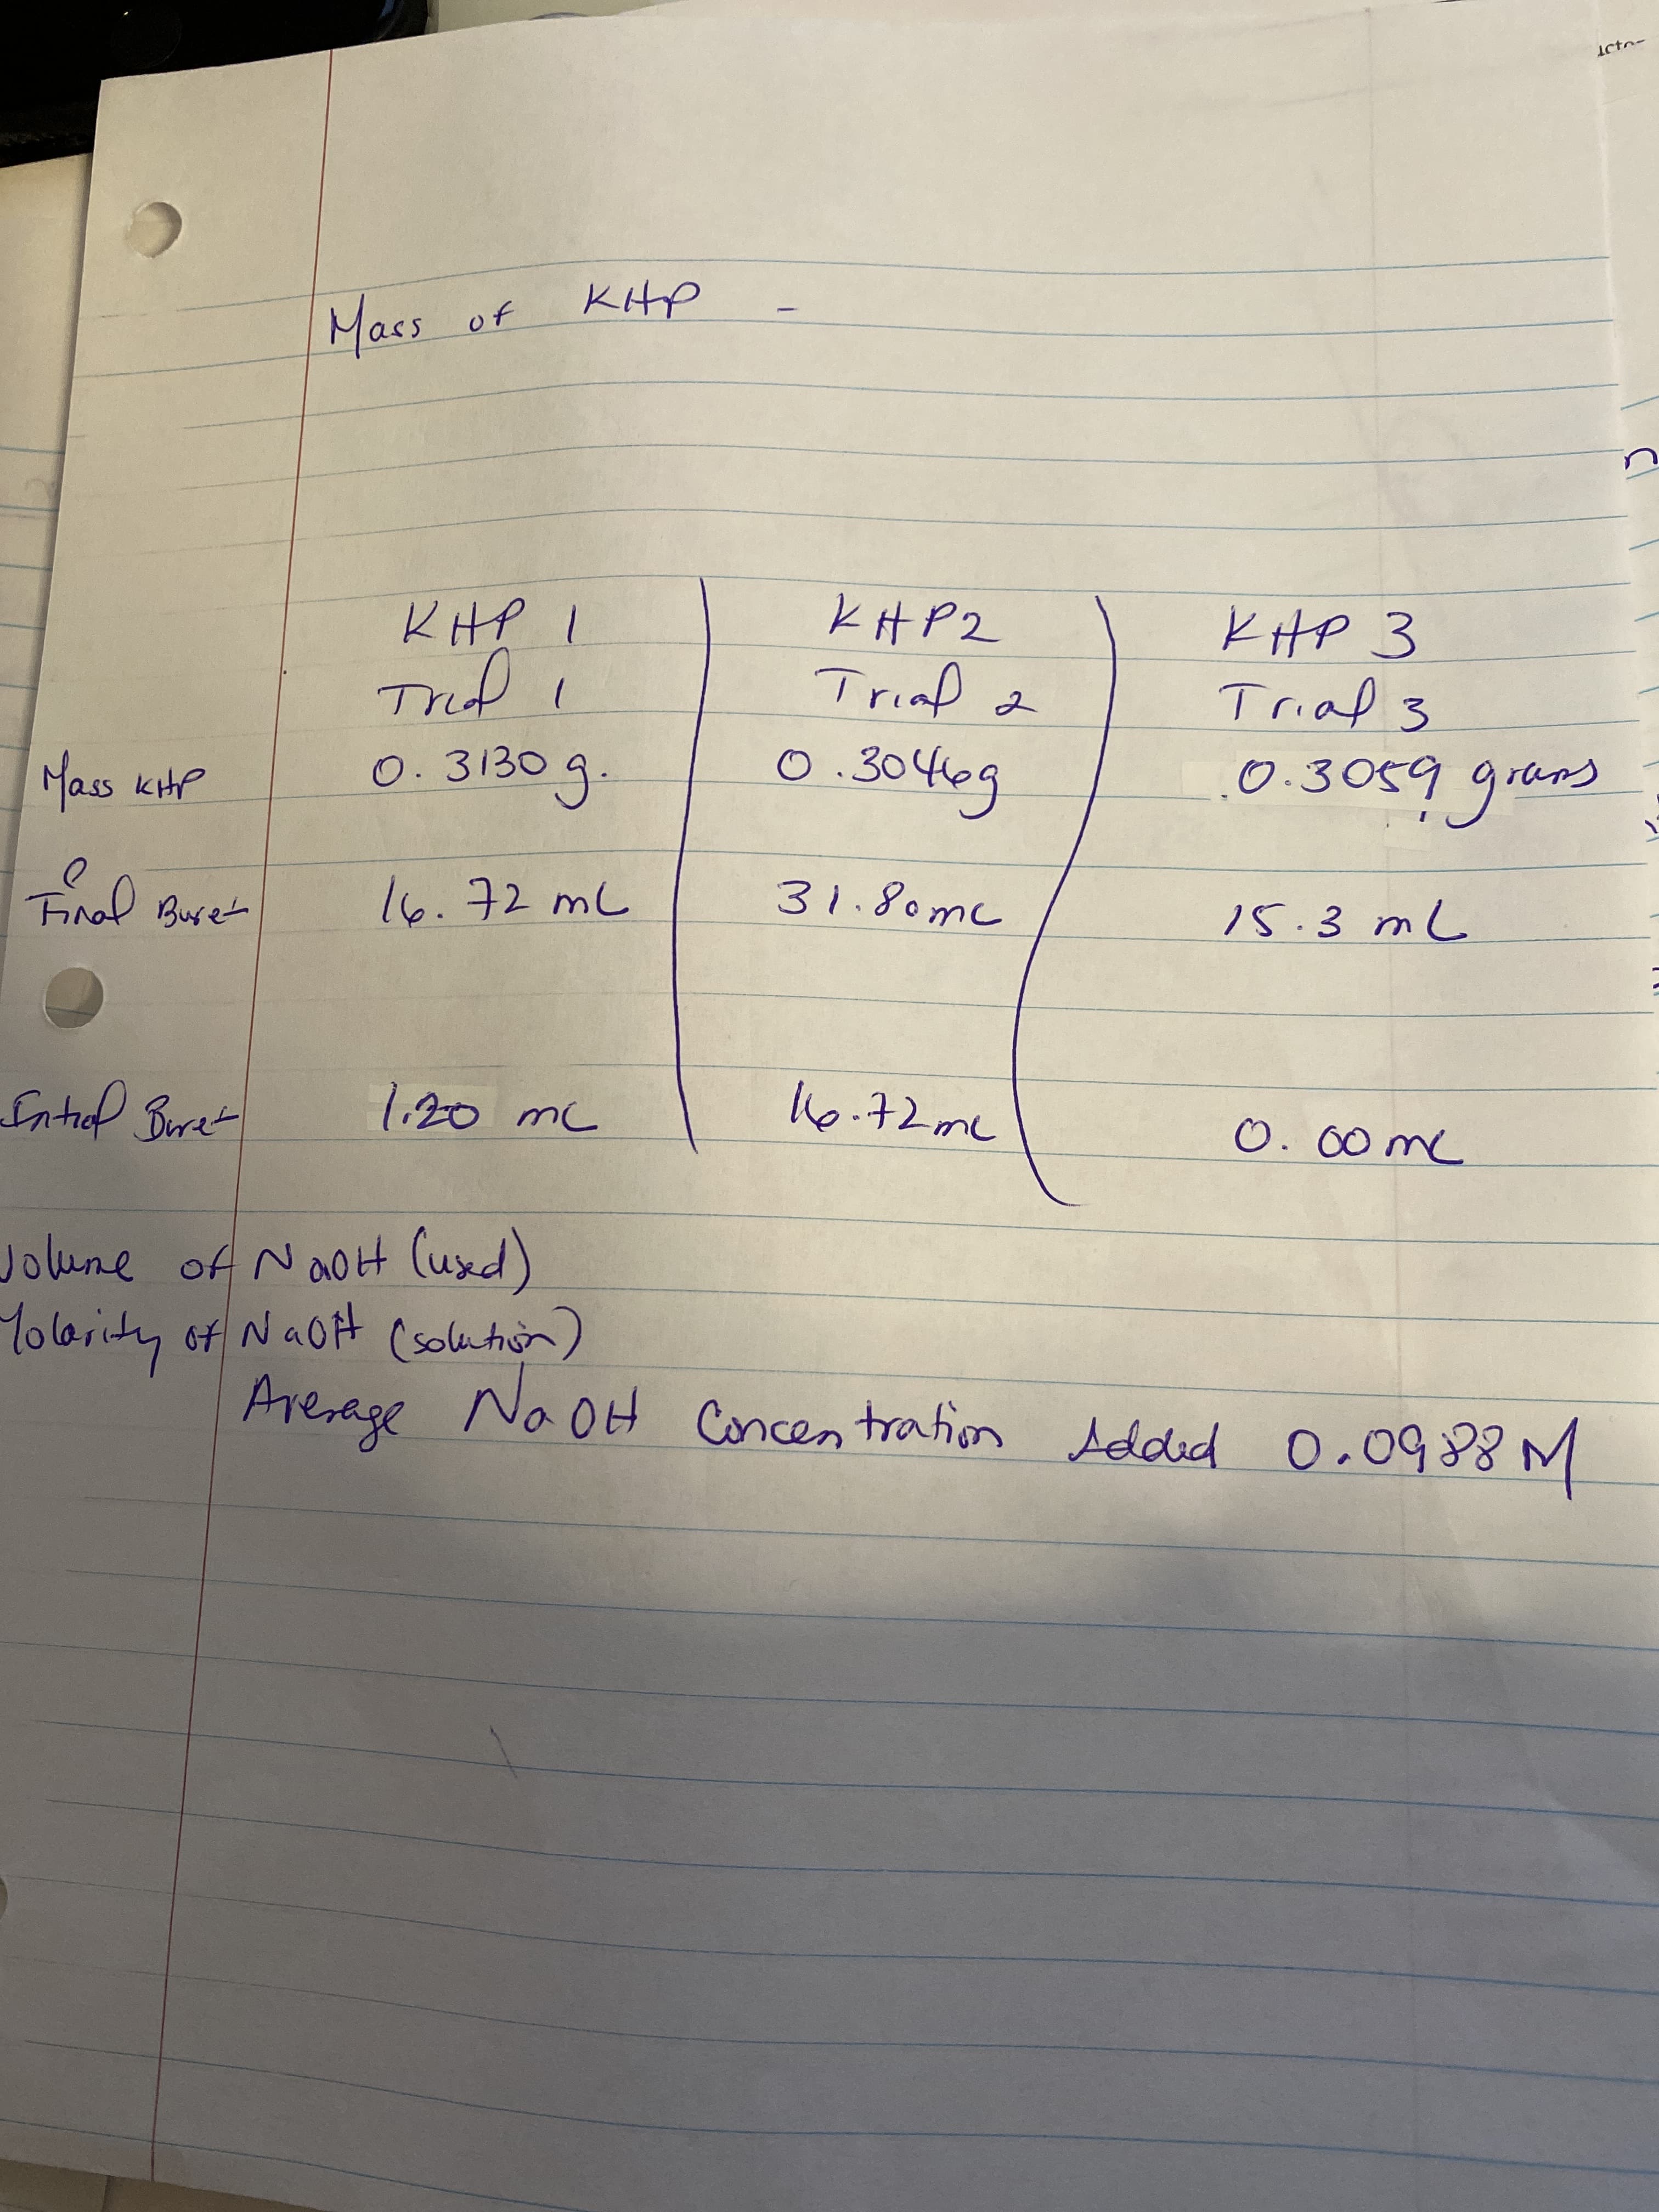 Mass of KHP -
KHP 1 KHP2 KHP 3
Trial 1 Trial 2 Trial 3
Mass KHP 0.3130 g. 0.3046g 0.3059 grams
Final Buret 16.72 mL 31.80mL 15.3 mL
Initial Buret 1.20 mL 16.72mL 0.00mL
Volume of NaOH (used)
Molarity of NaOH (solution)
Average NaOH Concentration Added 0.0988 M